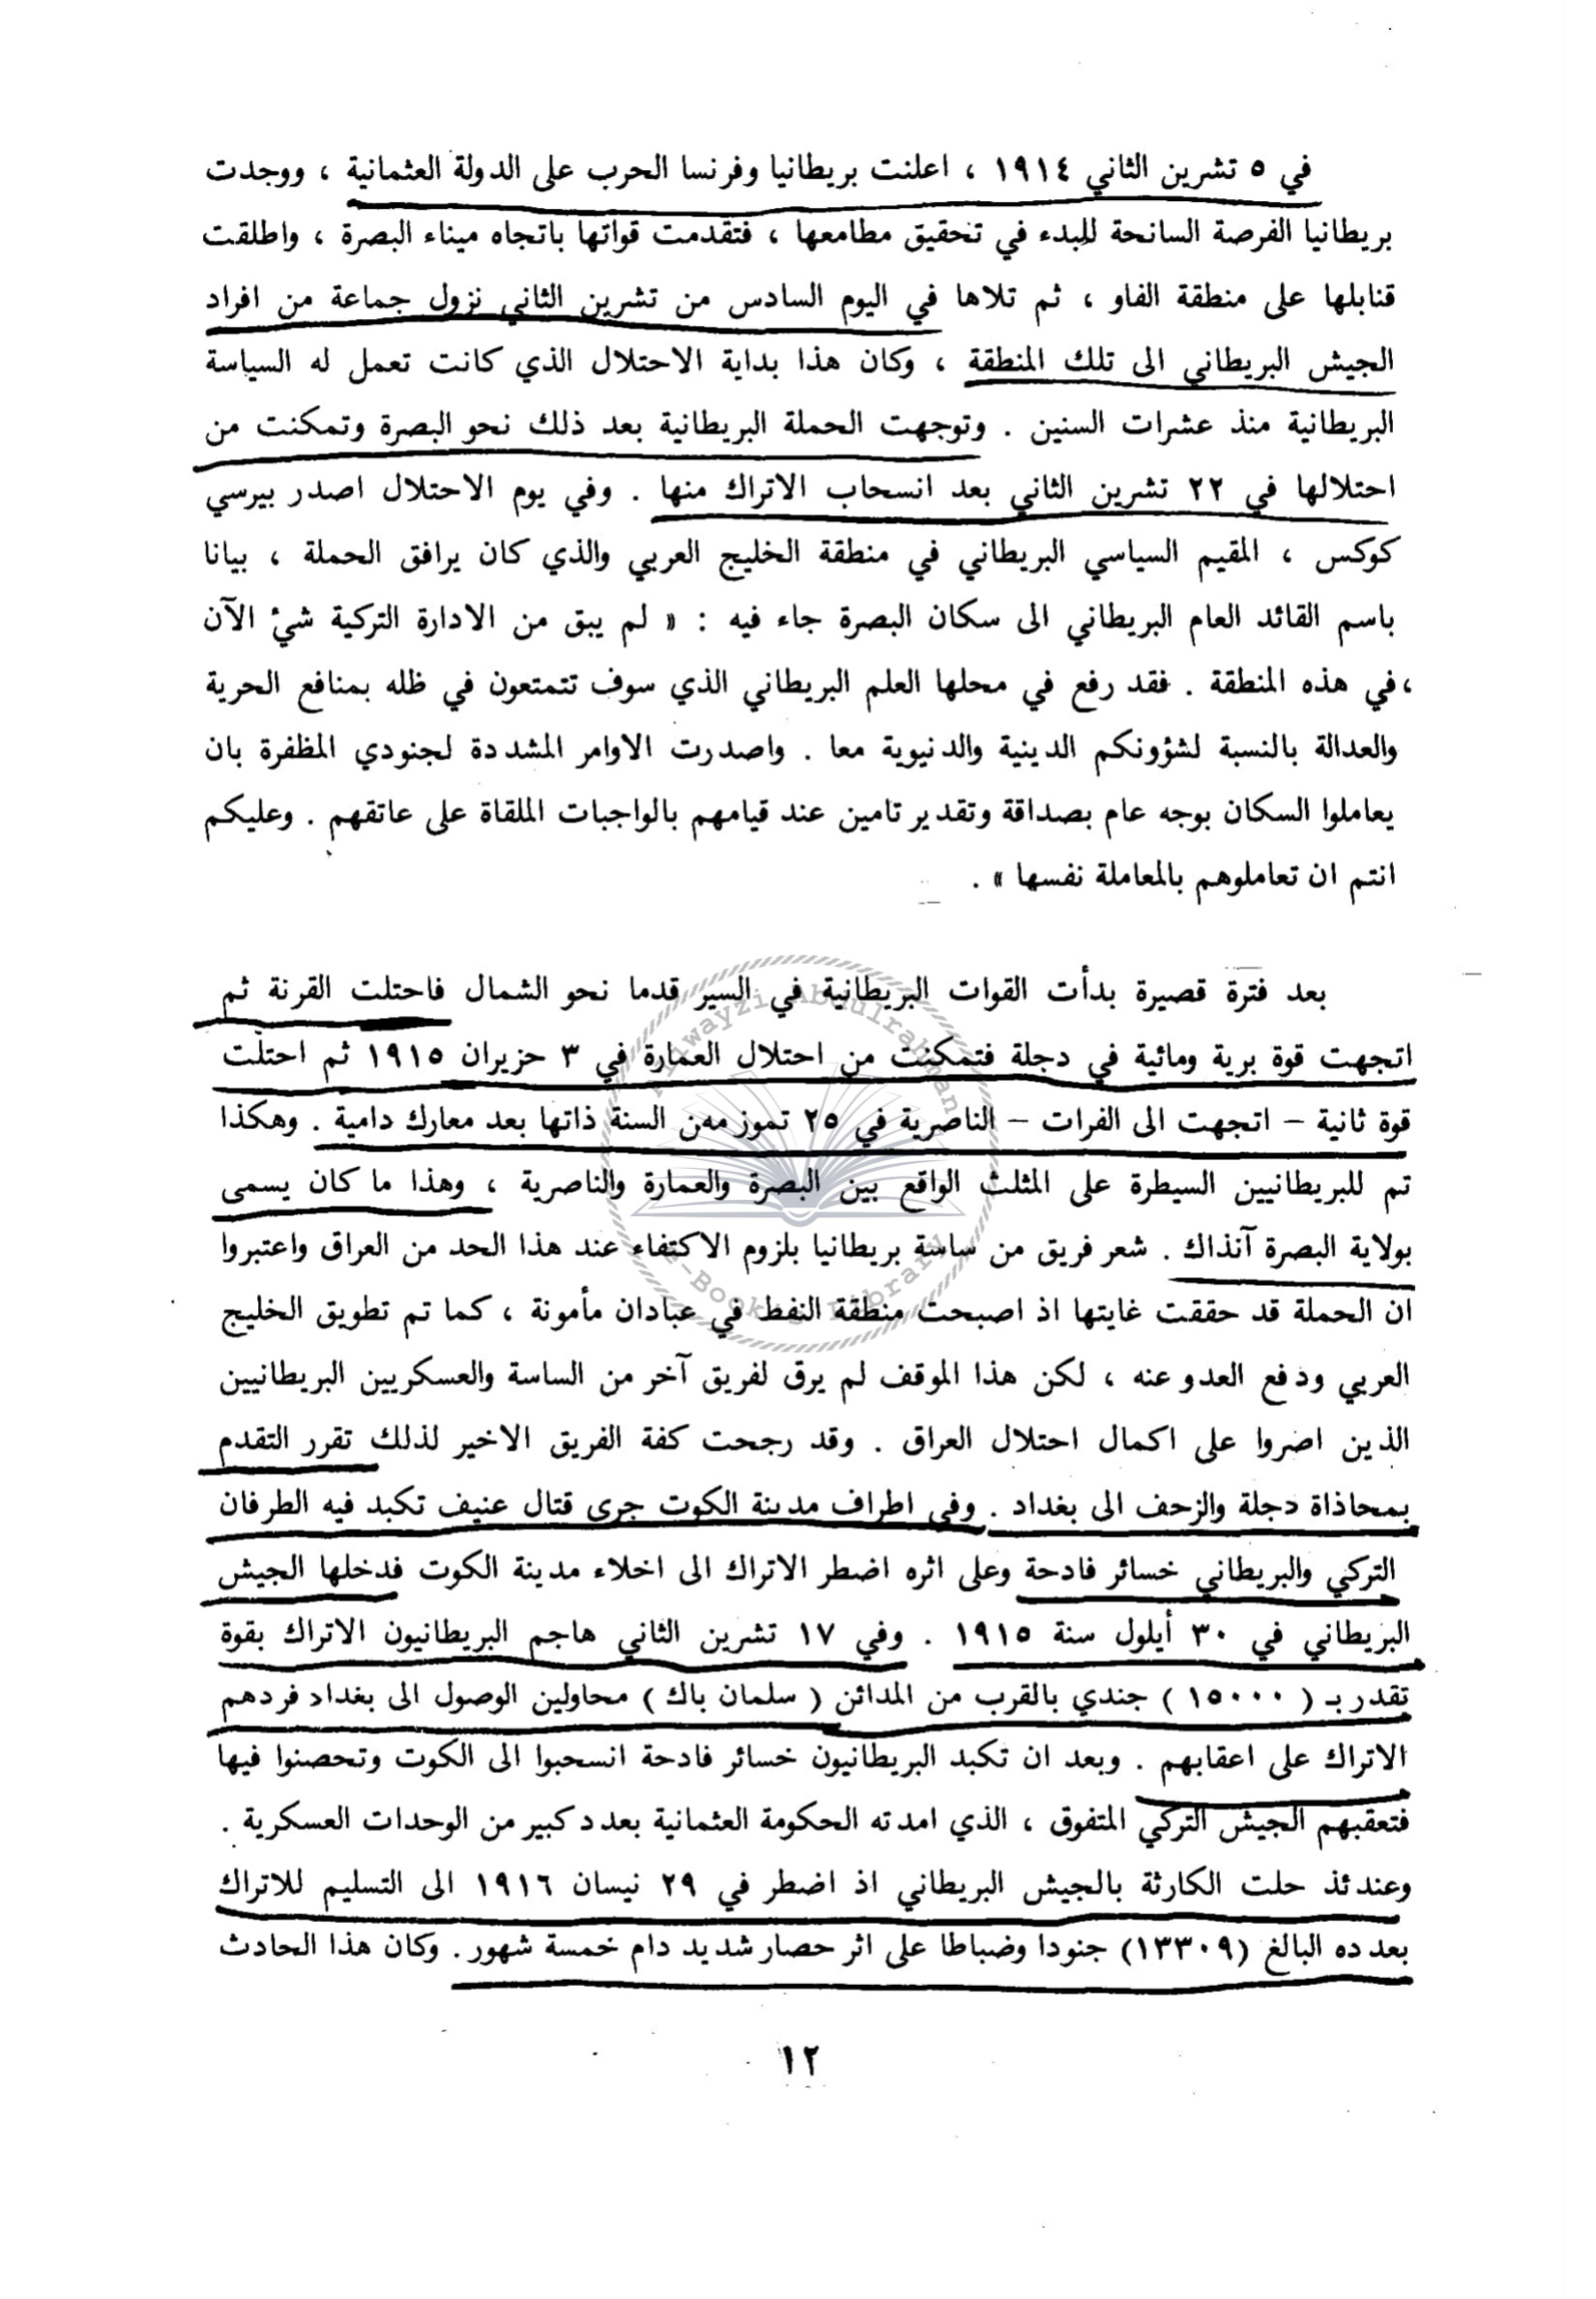 في ٥ تشرين الثاني ١٩١٤ ، اعلنت بريطانيا وفرنسا الحرب على الدولة العثمانية ، ووجدت
بريطانيا الفرصة السانحة للبدء في تحقيق مطامعها ، فتقدمت قواتها باتجاه ميناء البصرة ، واطلقت
قنابلها على منطقة الفاو ، ثم تلاها في اليوم السادس من تشرين الثاني نزول جماعة من افراد
الجيش البريطاني الى تلك المنطقة ، وكان هذا بداية الاحتلال الذي كانت تعمل له السياسة
البريطانية منذ عشرات السنين . وتوجهت الحملة البريطانية بعد ذلك نحو البصرة وتمكنت من
احتلالها في ٢٢ تشرين الثاني بعد انسحاب الاتراك منها . وفي يوم الاحتلال اصدر بيرسي
كوكس ، المقيم السياسي البريطاني في منطقة الخليج العربي والذي كان يرافق الحملة ، بيانا
باسم القائد العام البريطاني الى سكان البصرة جاء فيه : « لم يبق من الادارة التركية شيْ الآن
، في هذه المنطقة . فقد رفع في محلها العلم البريطاني الذي سوف تتمتعون في ظله بمنافع الحرية
والعدالة بالنسبة لشؤونكم الدينية والدنيوية معا . واصدرت الاوامر المشددة لجنودي المظفرة بان
يعاملوا السكان بوجه عام بصداقة وتقدير تامين عند قيامهم بالواجبات الملقاة على عاتقهم . وعليكم
انتم ان تعاملوهم بالمعاملة نفسها » .
بعد فترة قصيرة بدأت القوات البريطانية في السير قدما نحو الشمال فاحتلت القرنة ثم
اتجهت قوة برية ومائية في دجلة فتمكنت من احتلال العمارة في ٣ حزيران ١٩١٥ ثم احتلت
قوة ثانية – اتجهت الى الفرات – الناصرية في ٢٥ تموز مهن السنة ذاتها بعد معارك دامية . وهكذا
تم للبريطانيين السيطرة على المثلث الواقع بين البصرة والعمارة والناصرية ، وهذا ما كان يسمى
بولاية البصرة آنذاك . شعر فريق من ساسة بريطانيا بلزوم الاكتفاء عند هذا الحد من العراق واعتبروا
ان الحملة قد حققت غايتها اذ اصبحت منطقة النفط في عبادان مأمونة ، كما تم تطويق الخليج
العربي ودفع العدو عنه ، لكن هذا الموقف لم يرق لفريق آخر من الساسة والعسكريين البريطانيين
الذين اصروا على اكمال احتلال العراق . وقد رجحت كفة الفريق الاخير لذلك تقرر التقدم
بمحاذاة دجلة والزحف الى بغداد . وفي اطراف مدينة الكوت جرى قتال عنيف تكبد فيه الطرفان
التركي والبريطاني خسائر فادحة وعلى اثره اضطر الاتراك الى اخلاء مدينة الكوت فدخلها الجيش
البريطاني في ٣٠ أيلول سنة ١٩١٥ . وفي ١٧ تشرين الثاني هاجم البريطانيون الاتراك بقوة
تقدر بـ ( ١٥٠٠٠ ) جندي بالقرب من المدائن ( سلمان باك ) محاولين الوصول الى بغداد فردهم
الاتراك على اعقابهم . وبعد ان تكبد البريطانيون خسائر فادحة انسحبوا الى الكوت وتحصنوا فيها
فتعقبهم الجيش التركي المتفوق ، الذي امدته الحكومة العثمانية بعدد كبير من الوحدات العسكرية .
وعندئذ حلت الكارثة بالجيش البريطاني اذ اضطر في ٢٩ نيسان ١٩١٦ الى التسليم للاتراك
بعدده البالغ (١٣٣٠٩) جنودا وضباطا على اثر حصار شديد دام خمسة شهور . وكان هذا الحادث
١٢